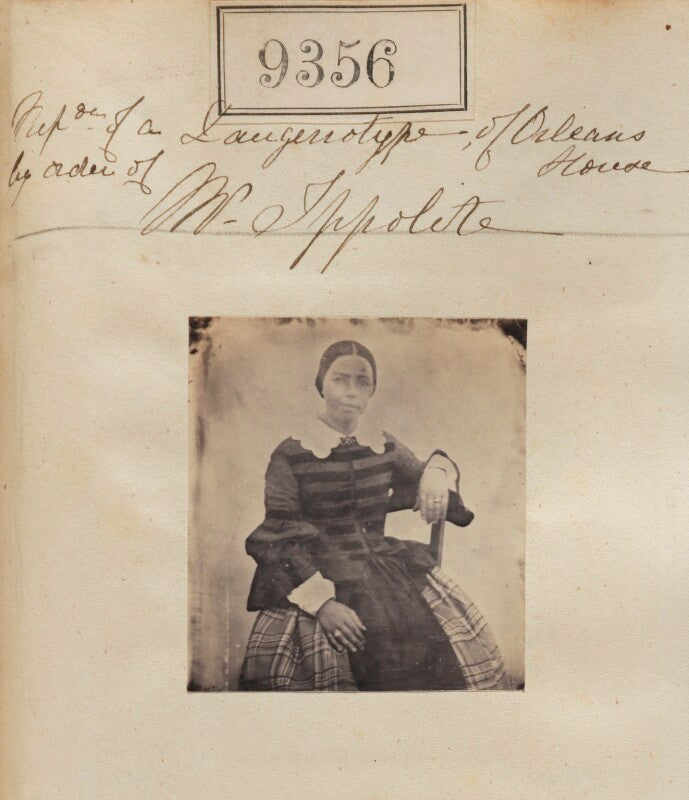 9356
Repdn of a Daugerrotype, of Orleans
by order of House
Mr Ippolite